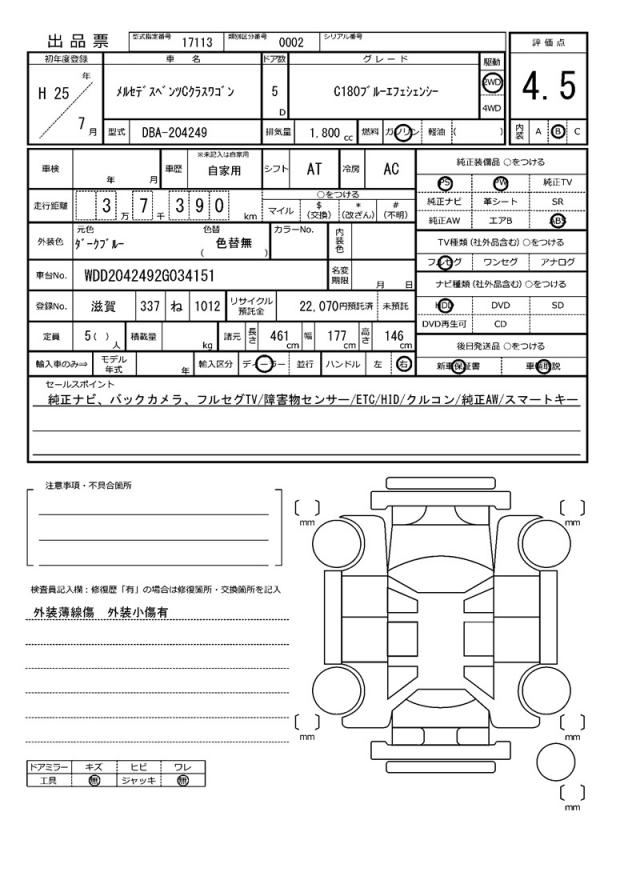 出品票 型式指定番号 17113 類別区分番号 0002 シリアル番号
評価点
4.5
初年度登録 車名 ドア数 グレード 駆動
H 25 年 7 月 ﾒﾙｾﾃﾞｽﾍﾞﾝﾂCｸﾗｽﾜｺﾞﾝ 5 D C180ﾌﾞﾙｰｴﾌｪｼｪﾝｼｰ 2WD
4WD
型式 DBA-204249 排気量 1.800 cc 燃料 ガソリン 軽油 ( ) 内装 A B C
車検 年 月 車歴 ※未記入は自家用 自家用 シフト AT 冷房 AC
走行距離 3 万 7 千 3 9 0 km
○をつける
マイル $ (交換) * (改ざん) # (不明)
外装色 元色 ﾀﾞｰｸﾌﾞﾙｰ 色替 ( 色替無 ) カラーNo. 内装色
車台No. WDD2042492G034151 名変期限 月 日
登録No. 滋賀 337 ね 1012 リサイクル預託金 22,070円預託済 未預託
定員 5( ) 人 積載量 kg 諸元 長さ 461 cm 幅 177 cm 高さ 146 cm
輸入車のみ⇒ モデル年式 年 輸入区分 ディーラー 並行 ハンドル 左 右
純正装備品 ○をつける
PS PW 純正TV
純正ナビ 革シート SR
純正AW エアB ABS
TV種類 (社外品含む) ○をつける
フルセグ ワンセグ アナログ
ナビ種類 (社外品含む) ○をつける
HDD DVD SD
DVD再生可 CD
後日発送品 ○をつける
新車保証書 車輌取説
セールスポイント
純正ナビ、バックカメラ、フルセグTV/障害物センサー/ETC/HID/クルコン/純正AW/スマートキー
注意事項・不具合箇所
検査員記入欄：修復歴「有」の場合は修復箇所・交換箇所を記入
外装薄線傷 外装小傷有
ドアミラー キズ ヒビ ワレ
工具 無 ジャッキ 無
mm
mm
mm
mm
mm